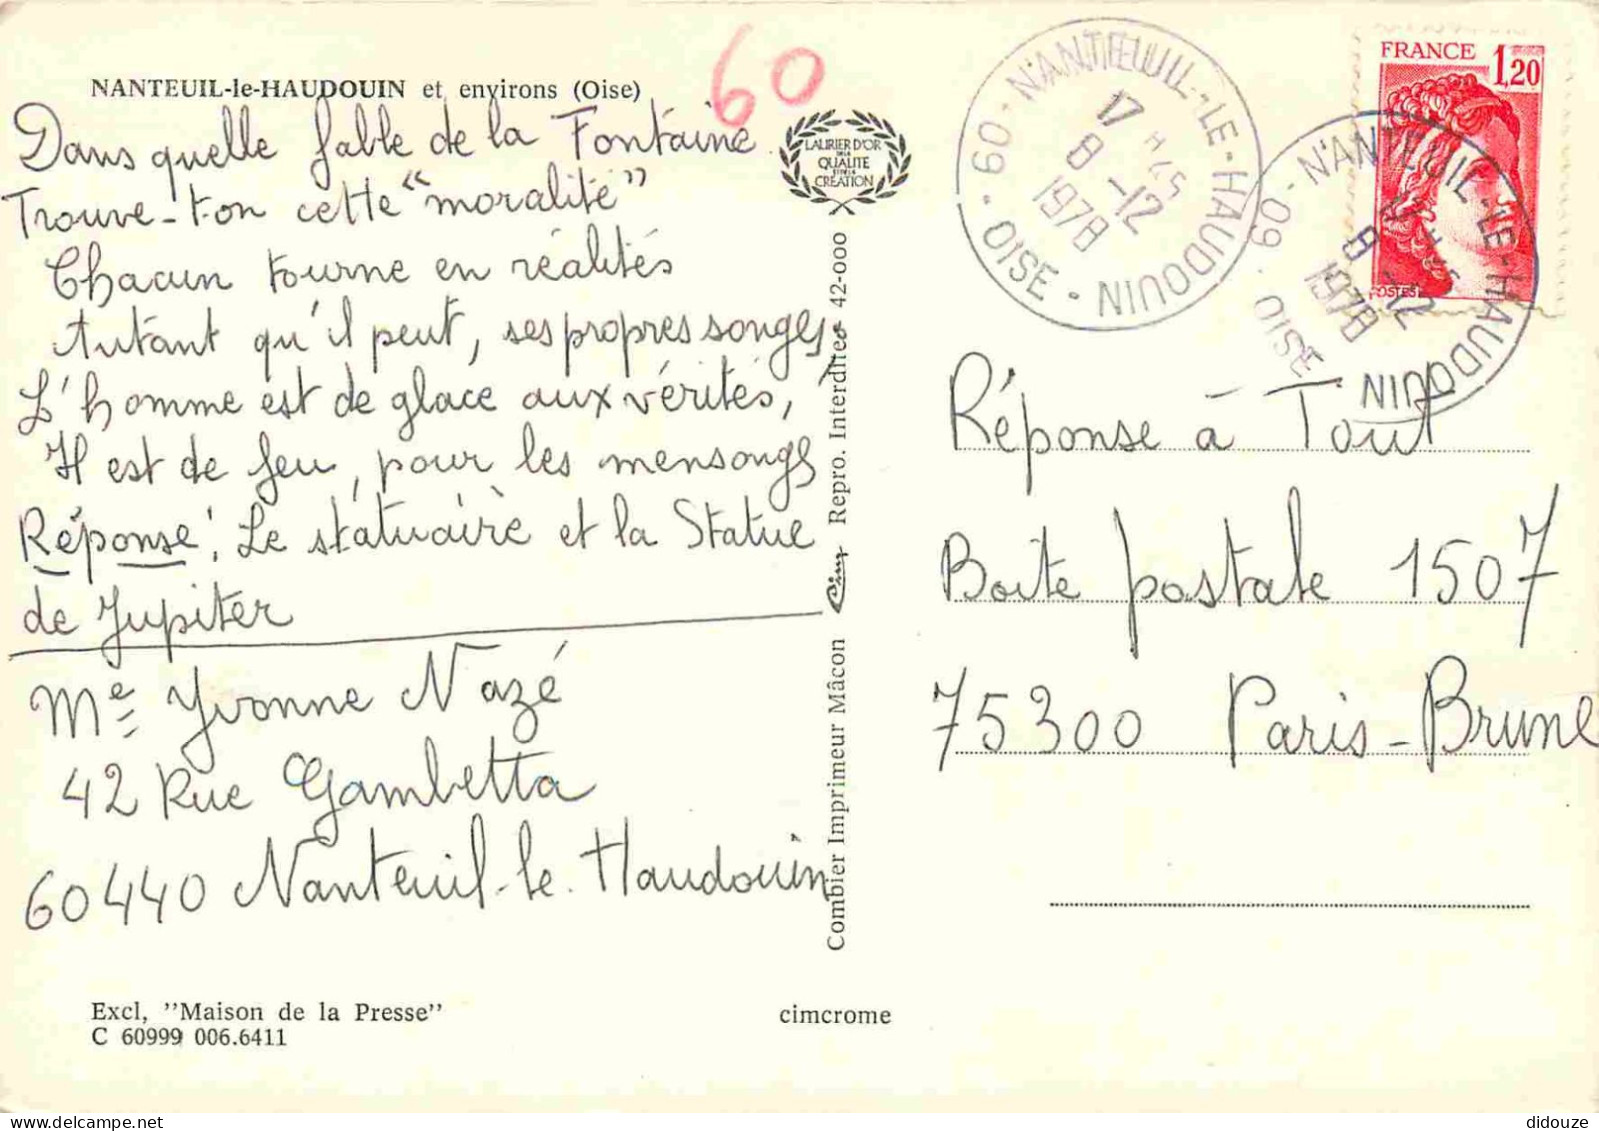 NANTEUIL-le-HAUDOUIN et environs (Oise)
60
Dans quelle fable de la Fontaine
Trouve-t-on cette "moralité"
Chacun tourne en réalités
Autant qu'il peut, ses propres songes,
L'homme est de glace aux vérités,
Il est de feu, pour les mensonges
Réponse: Le statuaire et la Statue
de Jupiter
Me Yvonne Nazé
42 Rue Gambetta
60440 Nanteuil-le-Haudouin
Excl, "Maison de la Presse"
C 60999 006.6411
cimcrome
LAURIER D'OR
DE LA
QUALITE
ET DE LA
CREATION
Combier Imprimeur Mâcon Cim Repro. Interdites 42-000
60 - NANTEUIL-LE-HAUDOUIN
17 H 45
8 -12
1978
OISE
60 - NANTEUIL-LE-HAUDOUIN
8 -12
1978
OISE
FRANCE 1,20
POSTES
Réponse à Tout
Boite postale 1507
75300 Paris-Brune
didouze